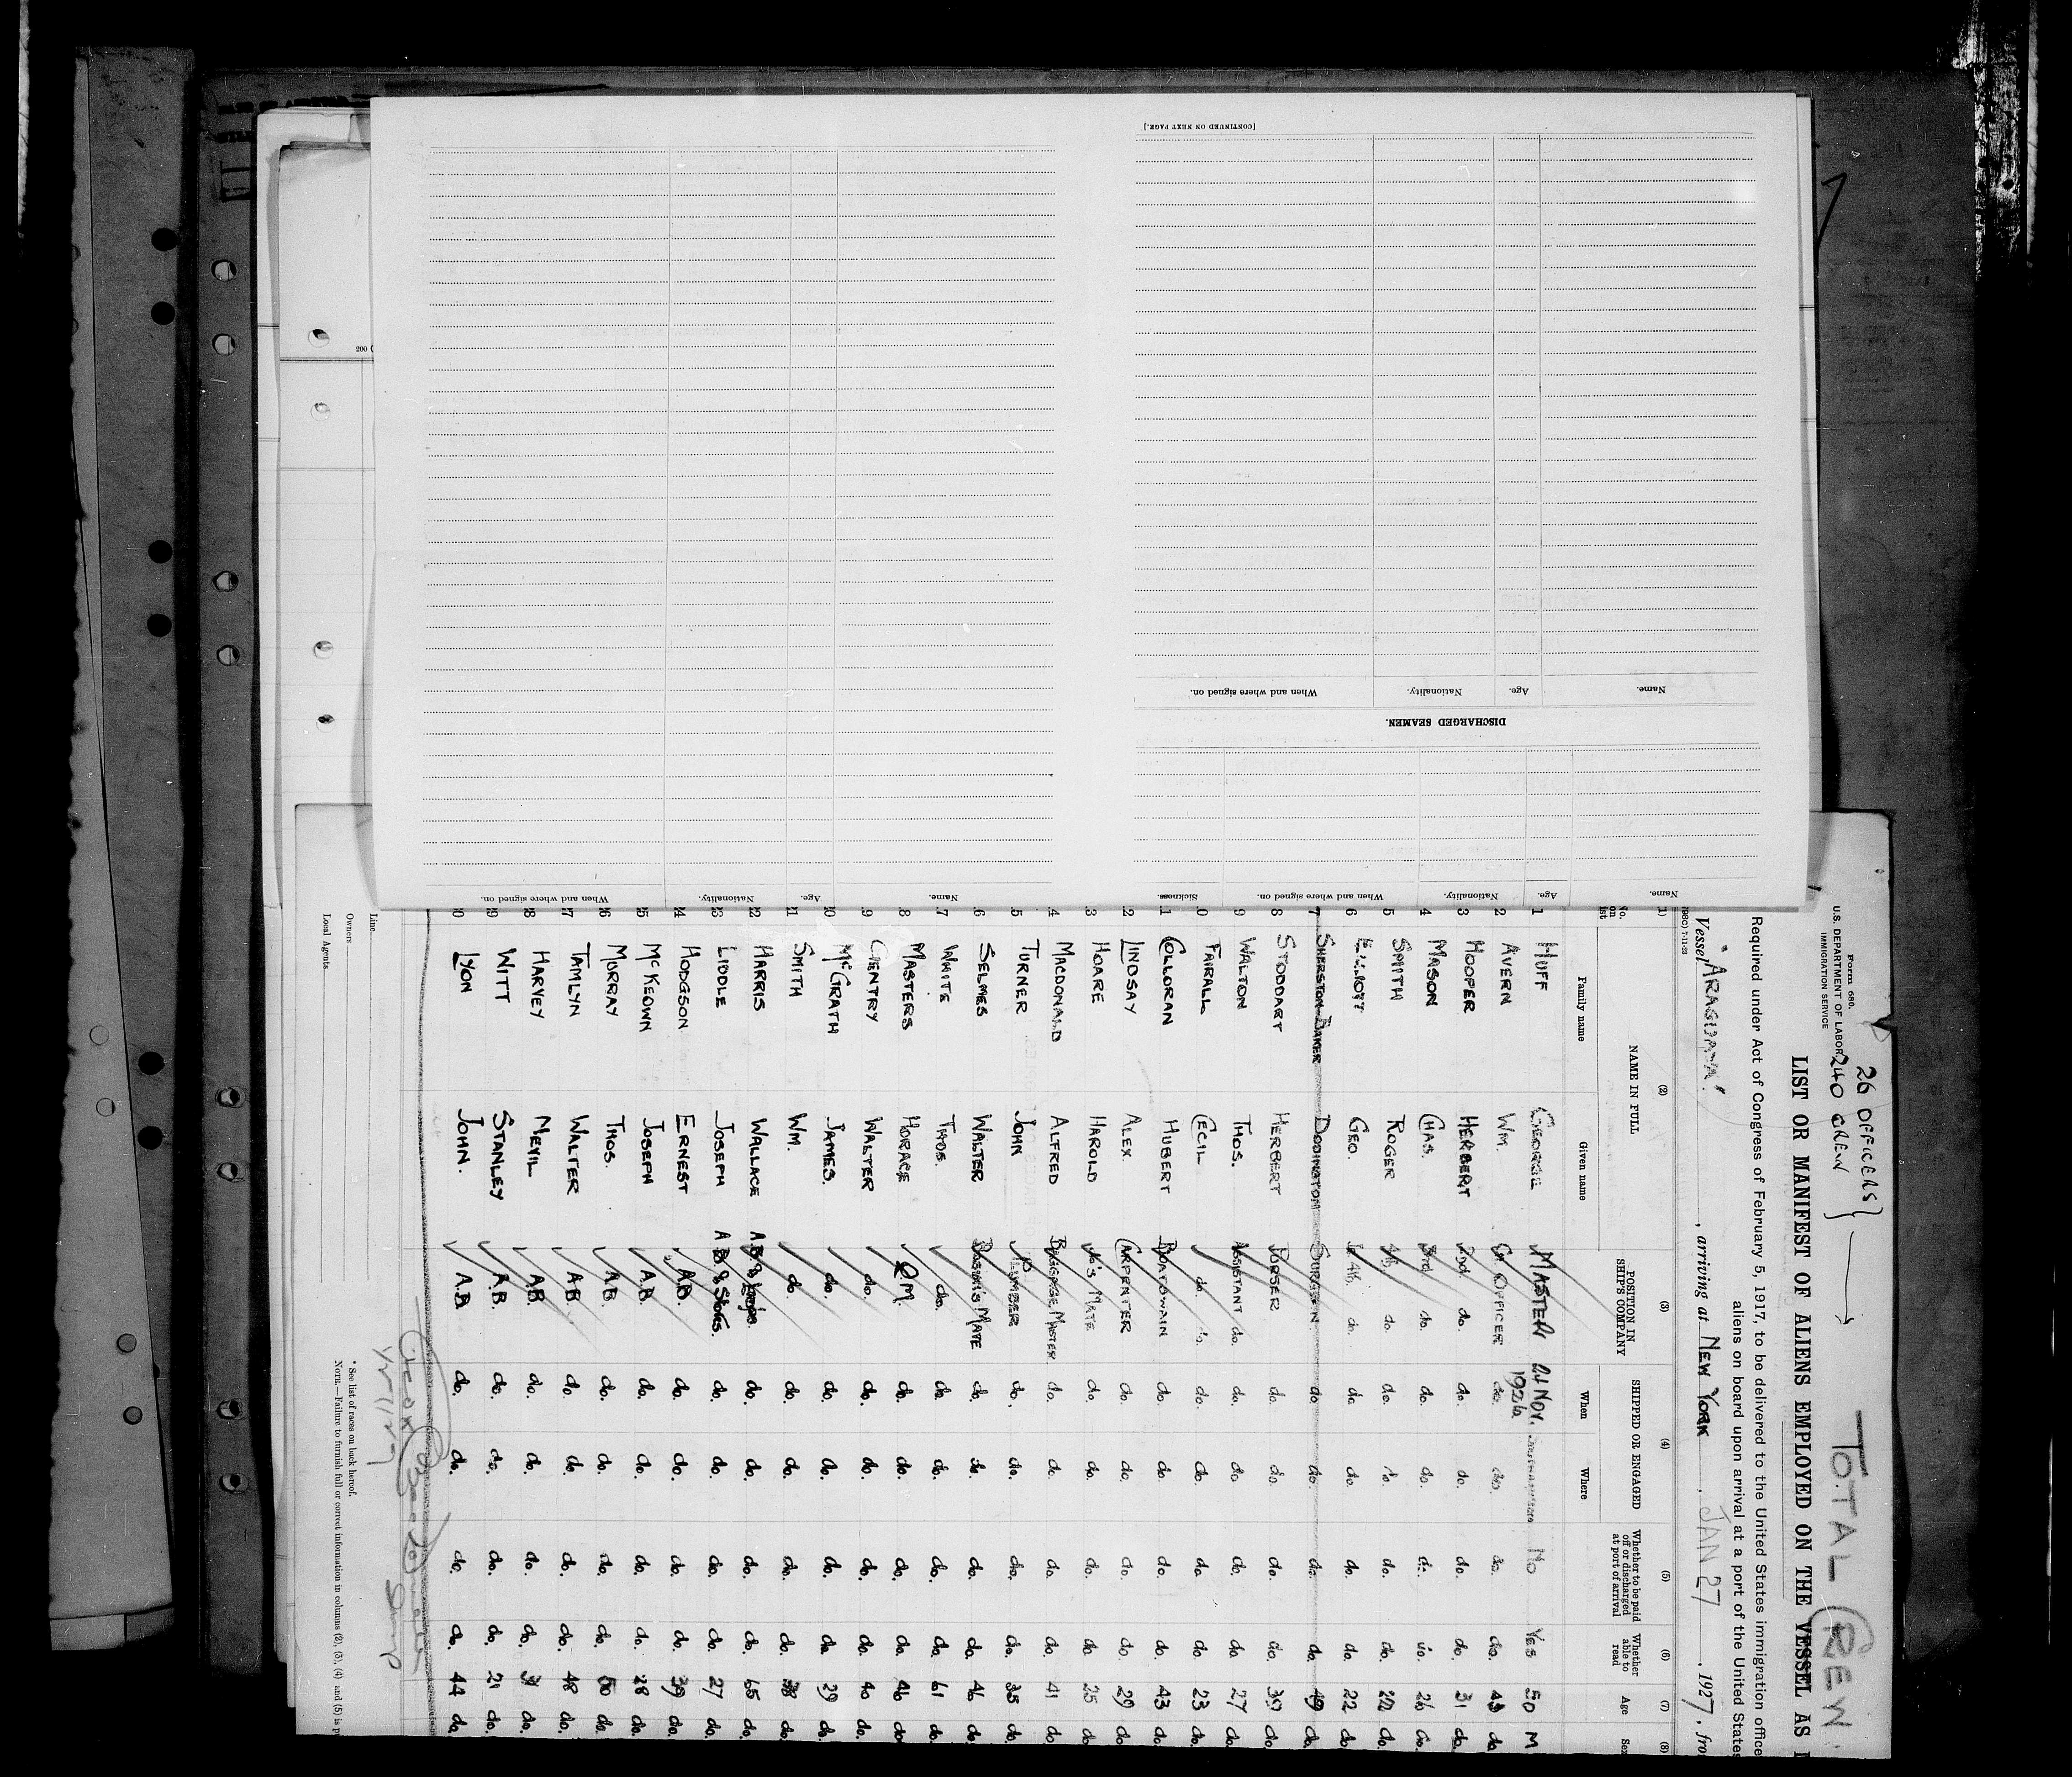 26 OFFICERS
240 CREW
TOTAL CREW
Form 680.
U.S. DEPARTMENT OF LABOR
IMMIGRATION SERVICE
LIST OR MANIFEST OF ALIENS EMPLOYED ON THE VESSEL AS
Required under Act of Congress of February 5, 1917, to be delivered to the United States immigration officer
aliens on board upon arrival at a port of the United States
Vessel "ARAGUAYA", arriving at NEW YORK, JAN 27, 1927, fro
(1) (2) (3) (4) (5) (6) (7) (8)
No. on list NAME IN FULL POSITION IN SHIP'S COMPANY SHIPPED OR ENGAGED Whether to be paid off or discharged at port of arrival Whether able to read Age Sex
Family name Given name When Where
1 HUFF GEORGE MASTER 24 NOV. 1926 No Yes 50 M
2 AVERN WM. CH. OFFICER do. do. do. do. 43 do.
3 HOOPER HERBERT 2nd. do. do. do. do. do. 31 do.
4 MASON CHAS. 3rd do. do. do. do. do. 26 do.
5 SMITH ROGER 4th do. do. do. do. do. 22 do.
6 ELLIOTT GEO. do. do. do. do. do. 22 do.
7 SHERSTON-BAKER DODINGTON SURGEON do. do. do. do. 49 do.
8 STODDART HERBERT PURSER do. do. do. do. 39 do.
9 WALTON THOS. ASSISTANT do. do. do. do. do. 27 do.
0 FAIRALL CECIL do. do. do. do. do. do. 23 do.
1 COLLORAN HUBERT BOATSWAIN do. do. do. do. 43 do.
2 LINDSAY ALEX. CARPENTER do. do. do. do. 29 do.
3 HOARE HAROLD MATE do. do. do. do. 25 do.
4 MACDONALD ALFRED BAGGAGE MASTER do. do. do. do. 41 do.
5 TURNER JOHN PLUMBER do. do. do. do. 35 do.
6 SELMES WALTER BOSUN'S MATE do. do. do. do. 46 do.
7 WHITE THOS. do. do. do. do. do. 61 do.
8 MASTERS HORACE Q.M. do. do. do. do. 46 do.
9 GENTRY WALTER do. do. do. do. do. 40 do.
0 McGRATH JAMES. do. do. do. do. do. 29 do.
1 SMITH WM. do. do. do. do. do. 38 do.
2 HARRIS WALLACE A.B. & do. do. do. do. 65 do.
3 LIDDLE JOSEPH A.B. & Stores. do. do. do. do. 27 do.
4 HODGSON ERNEST A.B. do. do. do. do. 39 do.
5 McKEOWN JOSEPH A.B. do. do. do. do. 28 do.
6 MURRAY THOS. A.B. do. do. do. do. 50 do.
7 TAMLYN WALTER A.B. do. do. do. do. 48 do.
8 HARVEY NEVIL A.B. do. do. do. do. 31 do.
9 WITT STANLEY A.B. do. do. do. do. 21 do.
0 LYON JOHN. A.B. do. do. do. do. 44 do.
Line
Owners
Local Agents
* See list of races on back hereof.
NOTE.—Failure to furnish full or correct information in columns (2), (3), (4) and (5) is p
Name. Age. Nationality. When and where signed on. Sickness.
DISCHARGED SEAMEN.
Name. Age. Nationality. When and where signed on.
[CONTINUED ON NEXT PAGE.]
Name. Age. Nationality. When and where signed on.
200